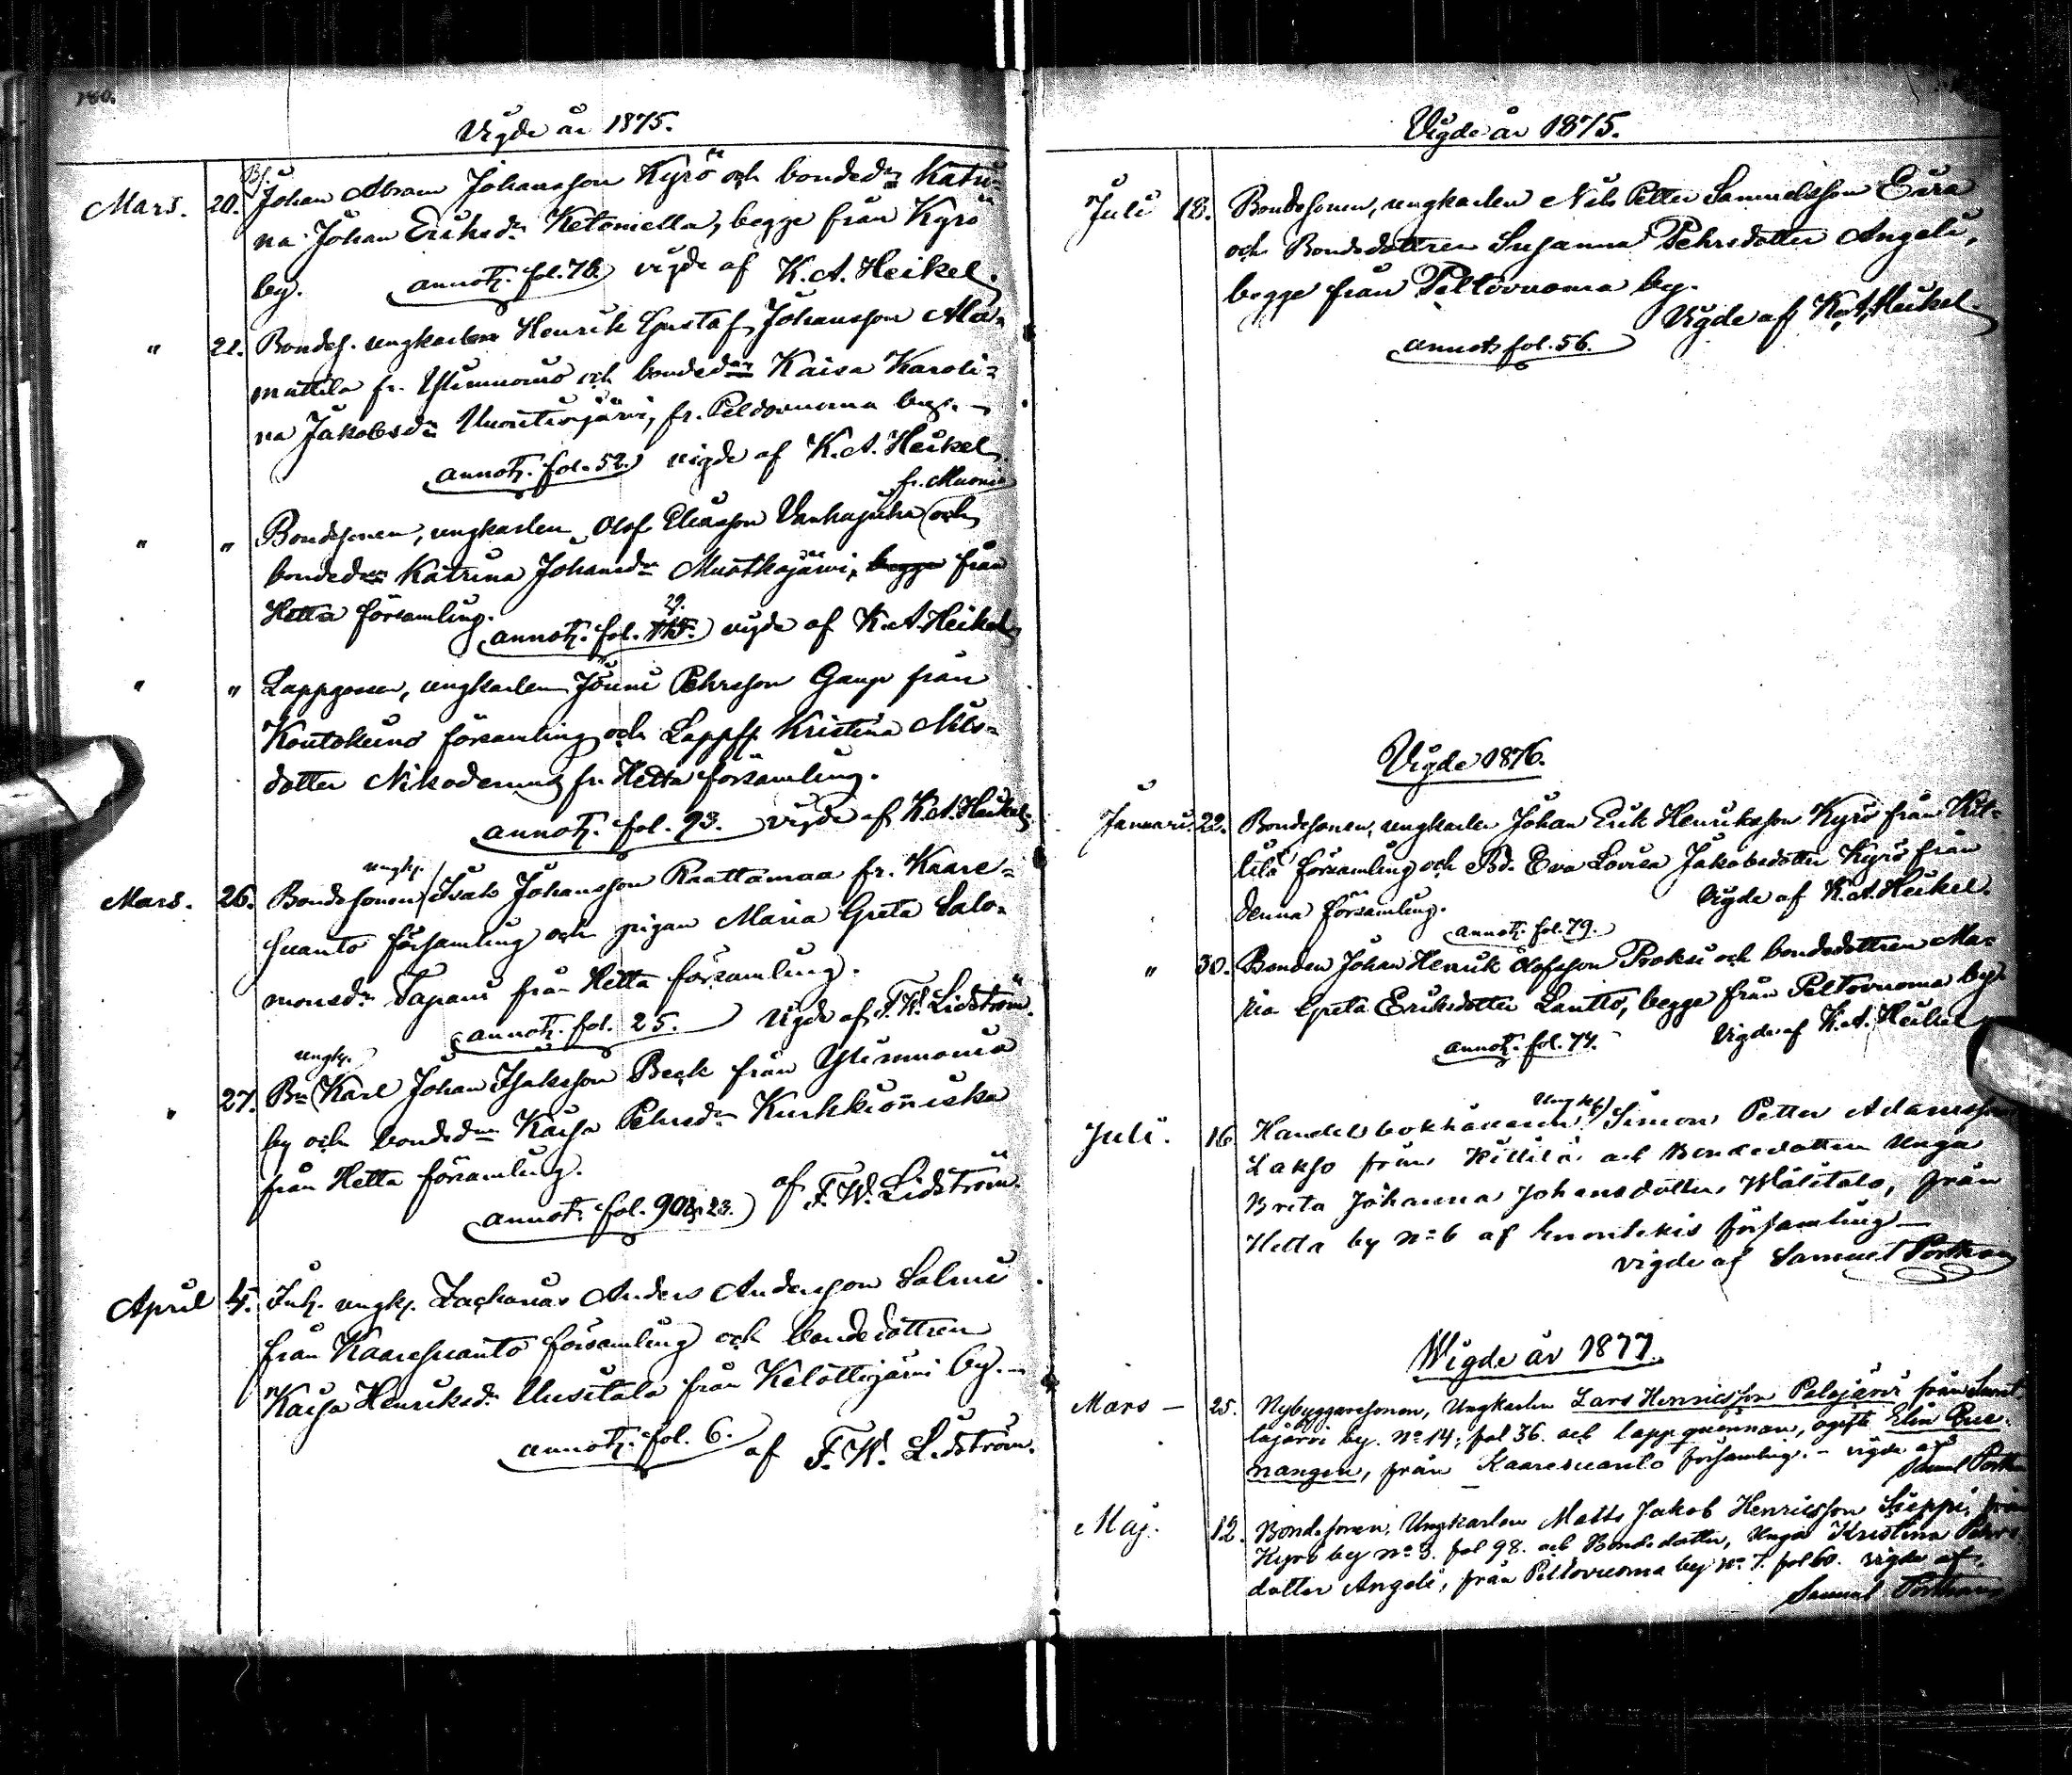 180.
Vigde år 1875.
Mars. 20. Bs. Johan Abram Johansson Kyrö och bondedn Katri=
na Johan Eriksdn Ketomella, begge från Kyrö
by. annot. fol. 76. vigde af K. A. Heikel.
" 21. Bondes. ungkarlen Henrik Gustaf Johansson Ma=
mattila fr. Ylimuonio och bondedn Kaisa Karoli=
na Jakobsdn Vuontisjärvi, fr. Peldovuoma by. —
annot. fol. 52. vigde af K. A. Heikel.
" " Bondesonen, ungkarlen Olof Eliasson Vanhajuha fr. Muonio och
bondedn Katrina Johansdn Muotkajärvi, begge från
Hetta församling.
annot. fol. 29. vigde af K. A. Heikel
" " Lappsonen, ungkarlen Jouni Pehrsson Gaup från
Koutokeino församling och Lappfl. Kristina Nils=
dotter Nikodemus fr. Hetta församling.
annot. fol. 93. vigde af K. A. Heikel
Mars. 26. Bondesonen ungk. Isak Johansson Raattamaa fr. Kaare=
suanto församling och pigan Maria Greta Salo=
monsdn Tapani från Hetta församling.
annot. fol. 25. vigde af F. W. Lidström.
" 27. Bn ungk. Karl Johan Isaksson Beck från Ylimuonio
by och bondedn Kaisa Pehrsdn Kurkkioniska
från Hetta församling.
annot. fol. 90 & 23. af F. W. Lidström.
April 4. Inh. ungk. Zacharias Anders Andersson Salmi
från Kaaresuanto församling och bondedottren
Kaisa Henriksdn Uusitalo från Kelottijärvi by. —
annot. fol. 6. af F. W. Lidström.
Vigde år 1875.
Juli 18. Bondesonen, ungkarlen Nils Petter Samuelsson Eira
och Bondedottren Susanna Pehrsdotter Angeli,
begge från Peltovuoma by.
Vigde af K. A. Heikel
annot. fol. 56.
Vigde 1876.
Januari 22. Bondesonen, ungkarlen Johan Erik Henriksson Kyrö från Kit=
tilä församling och Bd. Eva Lovisa Jakobsdotter Kyrö från
denna församling. Vigde af K. A. Heikel.
annot. fol. 79.
" 30. Bonden Johan Henrik Olofsson Proksi och bondedottren Ma=
ria Greta Eriksdotter Lantto, begge från Peltovuoma by.
annot. fol. 74. Vigde af K. A. Heikel
Juli. 16. Handelsbokhållaren Ungk. Simon Petter Adamsson
Lakso från Kittilä och Bondedottren unga
Brita Johanna Johansdotter Wälitalo, från
Hetta by No 6 af Enontekis församling —
vigde af Samuel Porthan
Wigde år 1877.
Mars — 25. Nybyggaresonen, Ungkarlen Lars Henricsson Palojärvi från
lajärvi by. No 14, fol 36. och lappqvinnan, ogifte Elin
nangen, från Kaaresuanto församling. — vigde af
Samuel Porthan
Maj. 12. Bondesonen, Ungkarlen Matts Jakob Henricsson Sieppi, från
Kyrö by No 3. fol 98. och Bondedotter, unga Kristina Pehrs
dotter Angeli, från Peltovuoma by No 7. fol 60. vigde af
Samuel Porthan